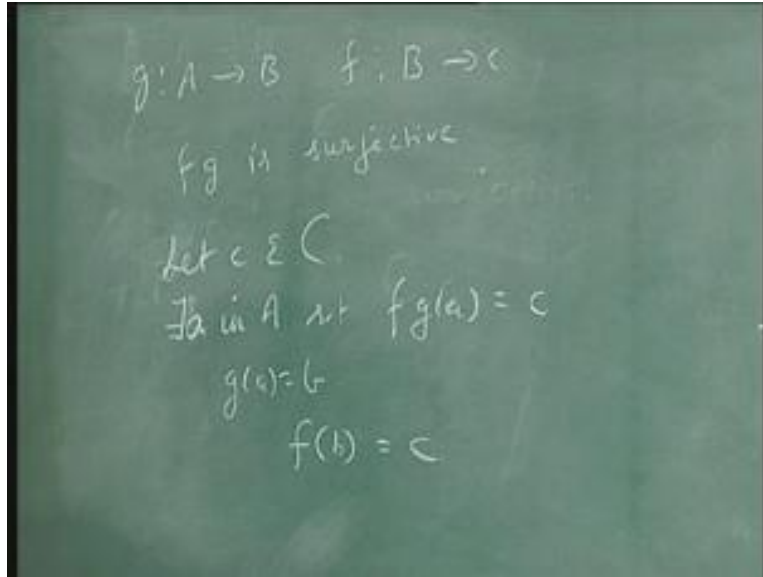 g: A → B f: B → C
fg is surjective
Let c ε C
∃a in A st fg(a) = c
g(a) = b
f(b) = c